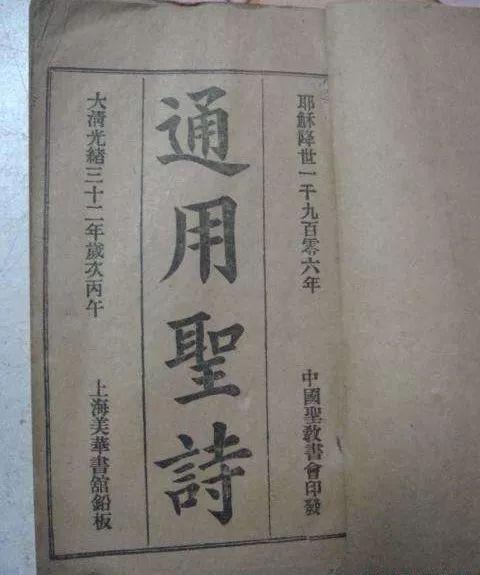 耶穌降世一千九百零六年
中國聖教書會印發
通用聖詩
大清光緒三十二年歲次丙午
上海美華書館鉛板